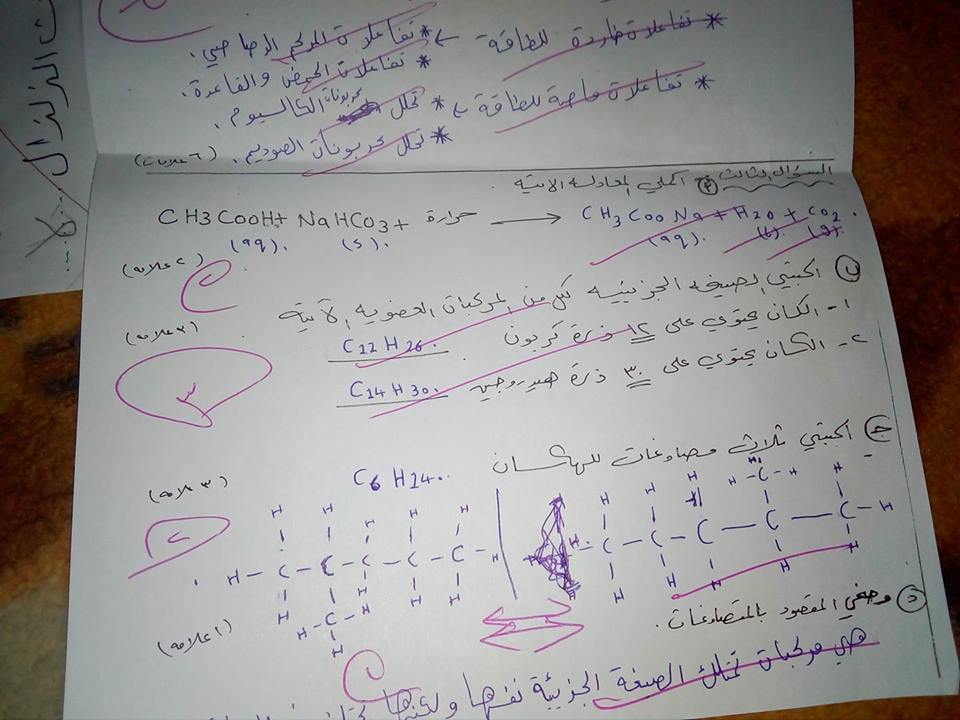 * تفاعلات طاردة للطاقة ← * تفاعلات المركم الرصاصي.
* تفاعلات الحمض والقاعدة.
* تفاعلات ماصة للطاقة ← * تحلل كربونات الكالسيوم.
* تحلل كربونات الصوديوم. (٦ علامات)
السؤال الثالث أكملي المعادلة الآتية
CH3COOH + NaHCO3 + حرارة → CH3COONa + H2O + CO2.
(aq). (s). (aq). (l). (g).
(٢ علامة)
ب) اكتبي الصيغه الجزيئيه لكل من المركبات العضويه الآتية
١- الكان يحتوي على ١٢ ذرة كربون C12H26.
٢- الكان يحتوي على ٣٠ ذرة هيدروجين C14H30.
٣
ج) اكتبي ثلاث متصاوغات للهكسان
C6H14.
(٣ علامة)
٢
H H H H H H-C-H H
H-C-C-C-C-C-H
H H H H H
H H H H H
H-C-C-C-C-C-H
H H H H
H-C-H
H
د) وضحي المقصود بالمتصاوغات.
(١ علامة)
هي مركبات تمتلك الصيغة الجزيئية نفسها ولكنها
الزلزال